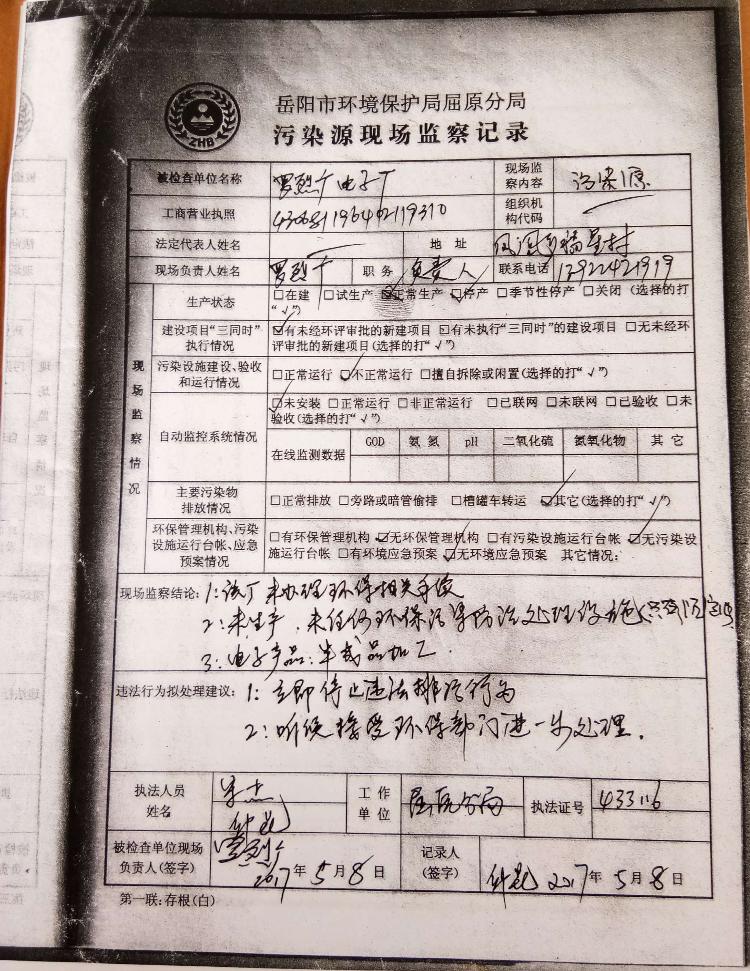 ZHB
岳阳市环境保护局屈原分局
污染源现场监察记录
被检查单位名称 电子厂 现场监察内容 污染源
工商营业执照 组织机构代码
法定代表人姓名 地 址 凤凰乡福星村
现场负责人姓名 职 务 负责人 联系电话
现场监察情况
生产状态 □在建 □试生产 ☑正常生产 ☑停产 □季节性停产 □关闭 (选择的打
“√”)
建设项目“三同时” ☑有未经环评审批的新建项目 □有未执行“三同时”的建设项目 □无未经环
执行情况 评审批的新建项目(选择的打“√”)
污染设施建设、验收 □正常运行 ☑不正常运行 □擅自拆除或闲置(选择的打“√”)
和运行情况
自动监控系统情况 ☑未安装 □正常运行 □非正常运行 □已联网 □未联网 □已验收 □未
验收(选择的打“√”)
在线监测数据 COD 氨氮 pH 二氧化硫 氮氧化物 其它
主要污染物 □正常排放 □旁路或暗管偷排 □槽罐车转运 ☑其它(选择的打“√”)
排放情况
环保管理机构、污染 □有环保管理机构 ☑无环保管理机构 □有污染设施运行台帐 ☑无污染设
设施运行台帐、应急 施运行台帐 □有环境应急预案 ☑无环境应急预案 其它情况:
预案情况
现场监察结论: 1:该厂未办理环保相关手续
2:未生产,未任何环保污染防治处理设施
3:电子产品:半成品加工.
违法行为拟处理建议: 1:立即停止违法排污行为
2:听候接受环保部门进一步处理.
执法人员姓名 工作单位 屈原分局 执法证号 433116
被检查单位现场 记录人
负责人(签字) 2017年5月8日 (签字) 2017年5月8日
第一联:存根(白)